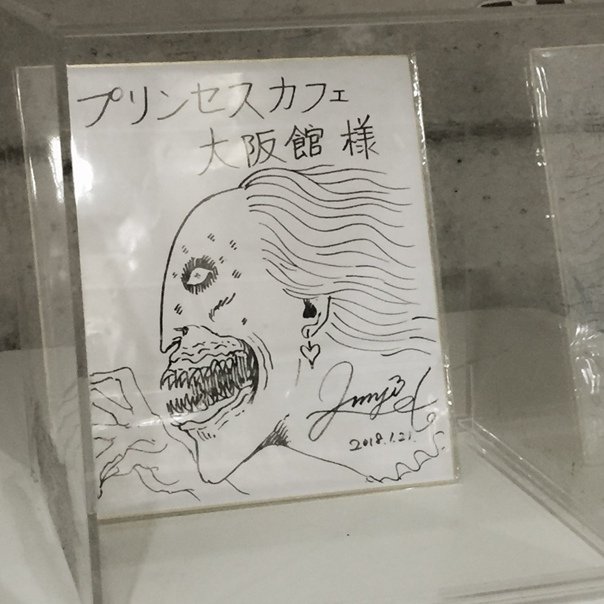 プリンセスカフェ
大阪館 様
2018.1.21.